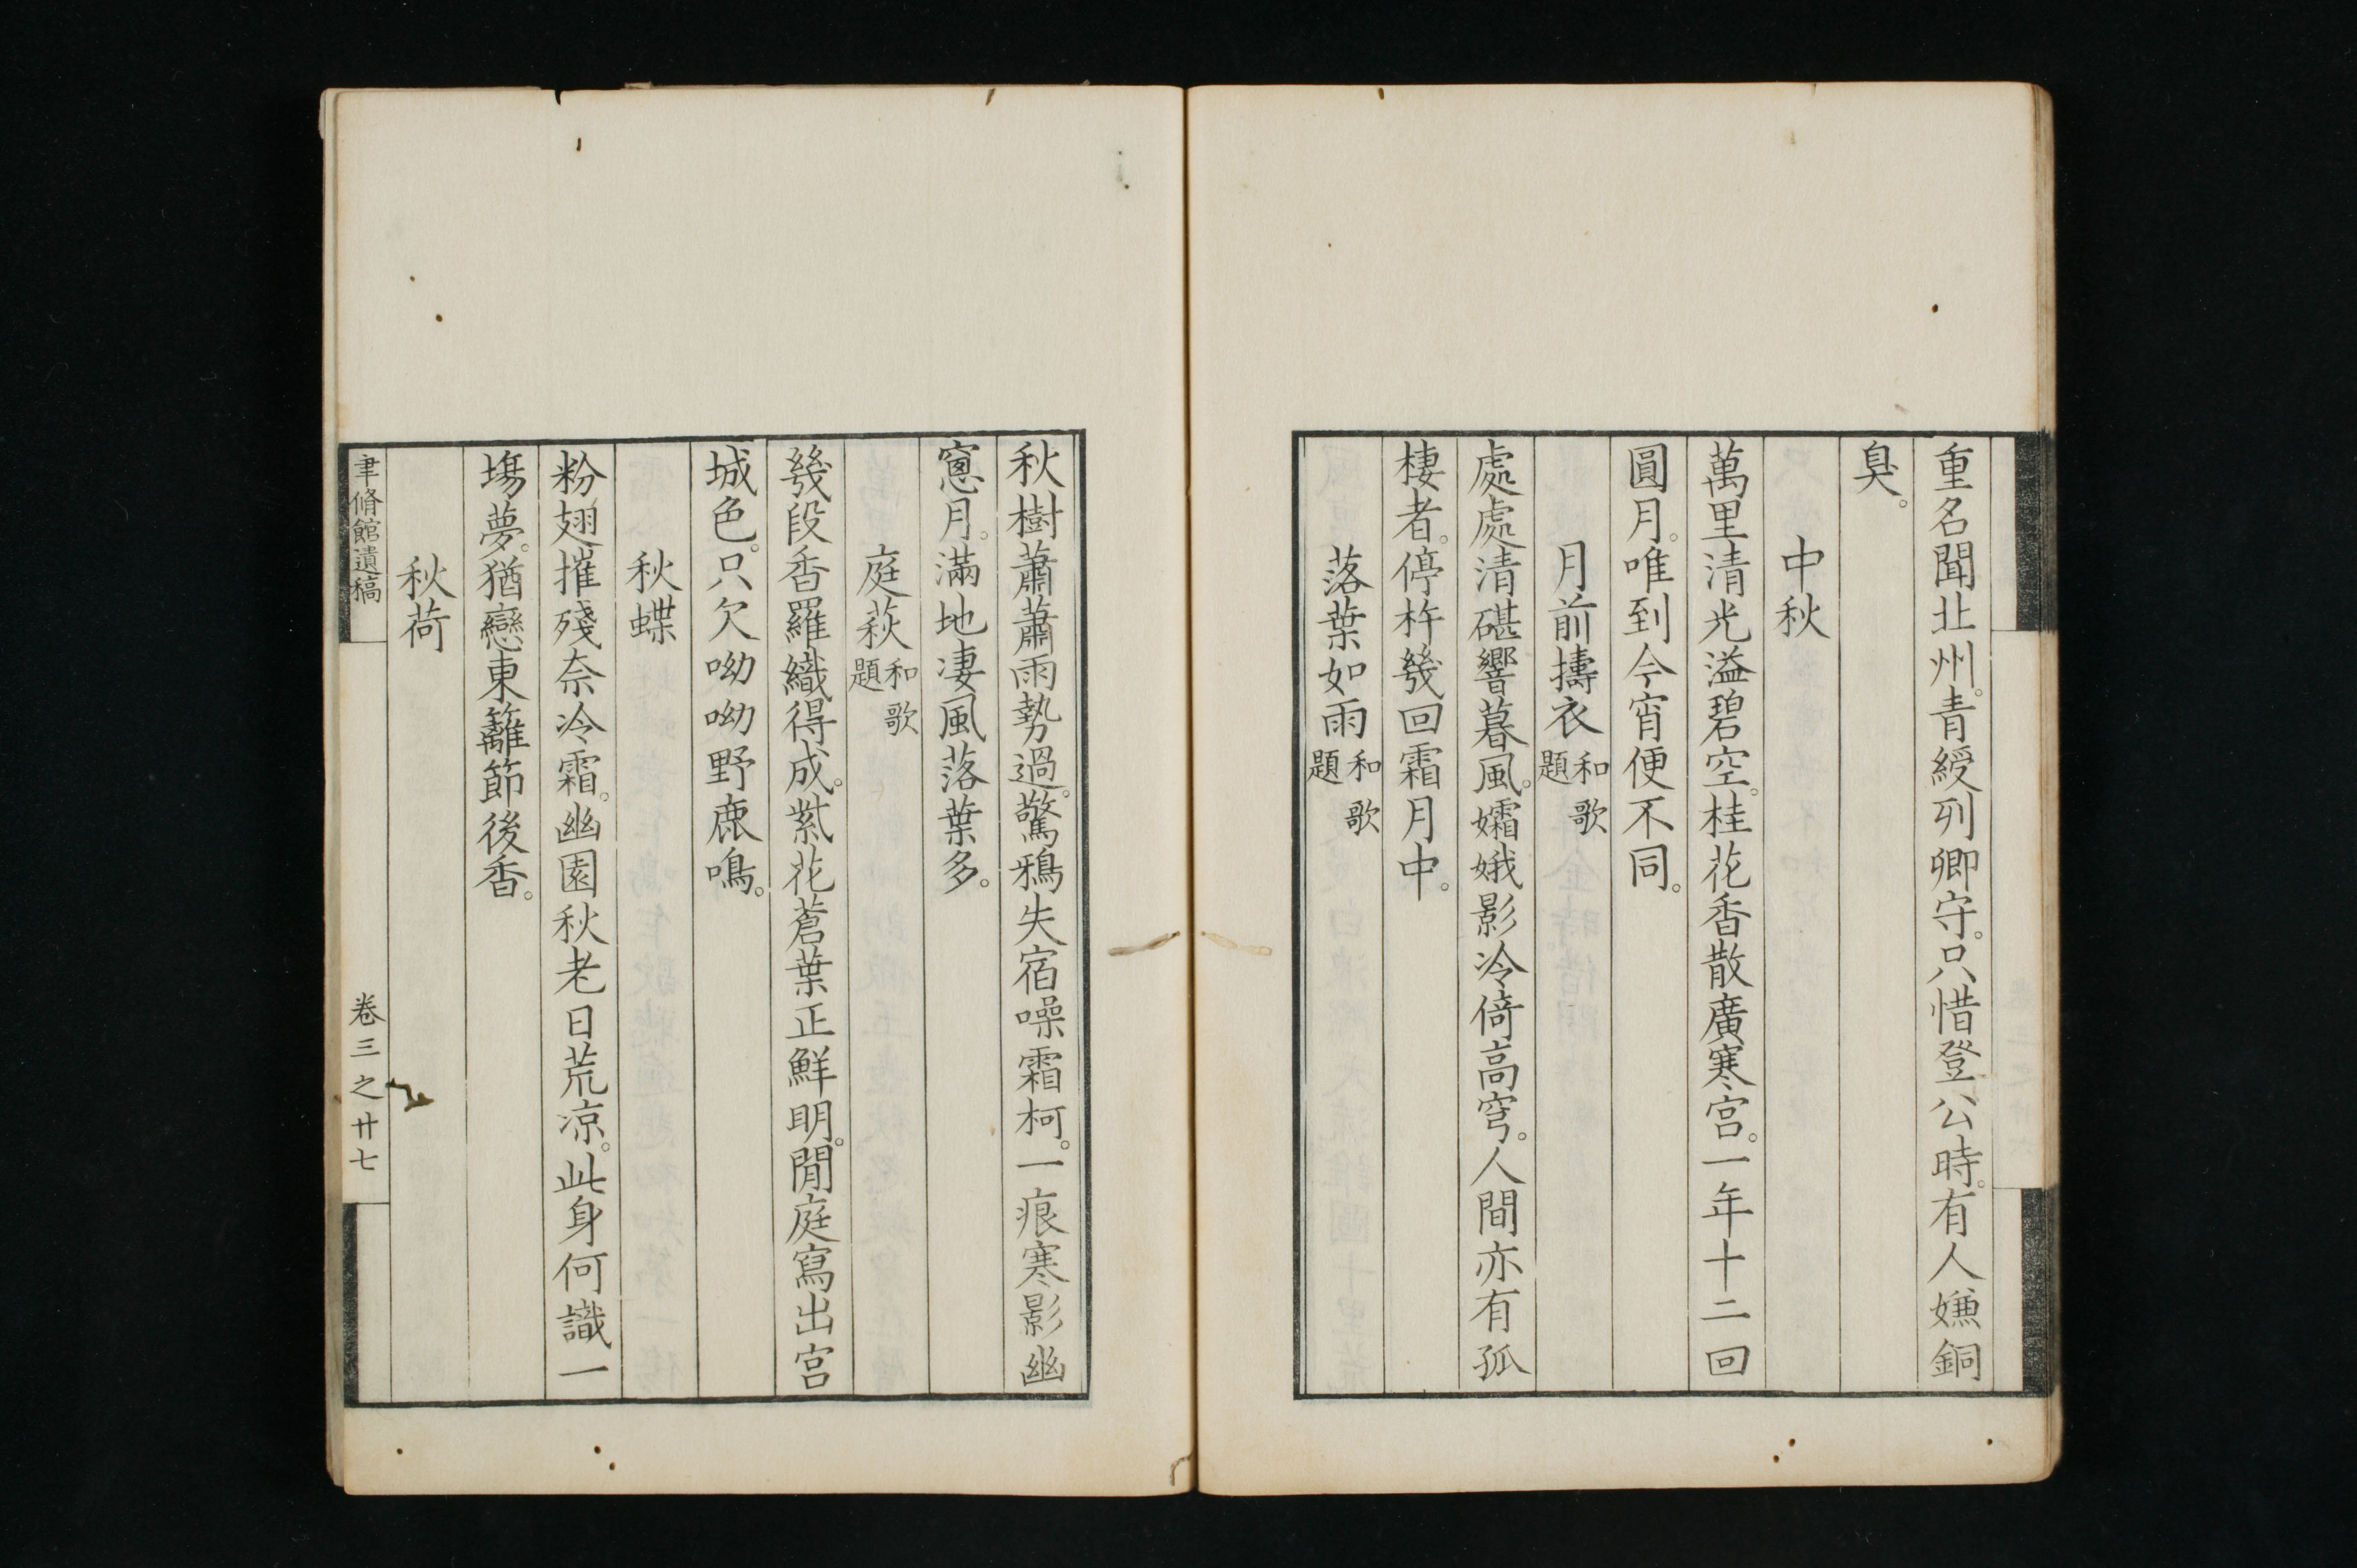 重名聞北州。青綬列卿守。只惜登公時。有人嫌銅
臭。
中秋
萬里清光溢碧空。桂花香散廣寒宮。一年十二回
圓月。唯到今宵便不同。
月前擣衣和歌題
處處清碪響暮風。孀娥影冷倚高穹。人間亦有孤
棲者。停杵幾回霜月中。
落葉如雨和歌題
秋樹蕭蕭雨勢過。驚鴉失宿噪霜柯。一痕寒影幽
窻月。滿地凄風落葉多。
庭萩和歌題
幾段香羅織得成。紫花蒼葉正鮮明。閒庭寫出宮
城色。只欠呦呦野鹿鳴。
秋蝶
粉翅摧殘奈冷霜。幽園秋老日荒凉。此身何識一
場夢。猶戀東籬節後香。
秋荷
聿脩館遺稿
卷三之廿七